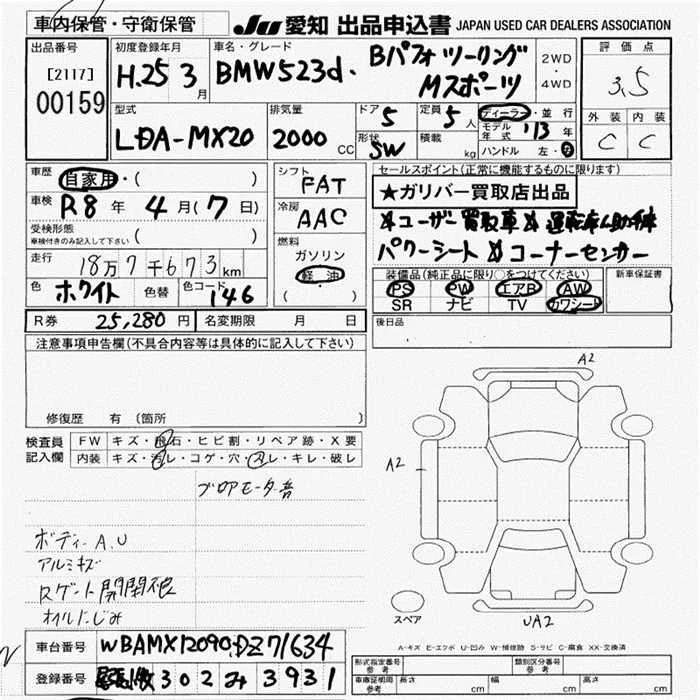 車内保管・守衛保管
JU 愛知 出品申込書 JAPAN USED CAR DEALERS ASSOCIATION
出品番号
[2117]
00159
初度登録年月
H.25 3月
車名・グレード
BMW523d.
Bパフォ ツーリング
Mスポーツ
2WD
・
4WD
評価点
3.5
外装 内装
C C
型式
LDA-MX20
排気量
2000 CC
ドア 5
形状 SW
定員 5人
積載 kg
ディーラー・並行
モデル年式 '13年
ハンドル 左・右
車歴 自家用・( )
車検 R8年 4月(7日)
受検形態
車検付きのみ記入して下さい ( )
走行 18万7千673km
色 ホワイト 色替 色コード 146
シフト
FAT
冷房
AAC
燃料
ガソリン
軽油
( )
セールスポイント(正常に機能するものに限ります)
★ガリバー買取店出品
ユーザー買取車
パワーシート コーナーセンサー
装備品(純正品に限り○をつけてください)
PS PW エアB AW
SR ナビ TV カワシート
新車保証書
後日品
R券 25,280円 名変期限 月 日
注意事項申告欄(不具合内容等は具体的に記入して下さい)
修復歴 有 (箇所 )
検査員
記入欄
FW キズ・飛石・ヒビ割・リペア跡・X要
内装 キズ・汚レ・コゲ・穴・スレ・キレ・破レ
ブロアモーター音
ボディーA.U
アルミキズ
Rゲート開閉不良
オイルにじみ
A2
A2
UA2
スペア
A-キズ E-エクボ U-凹み W-補修跡 S-サビ C-腐食 XX-交換済
車台番号 WBAMX12090DZ71634
登録番号 302 み 3931
形式指定番号
参考
類別区分番号
参考
車庫証明用
参考
長さ cm 幅 cm 高さ cm